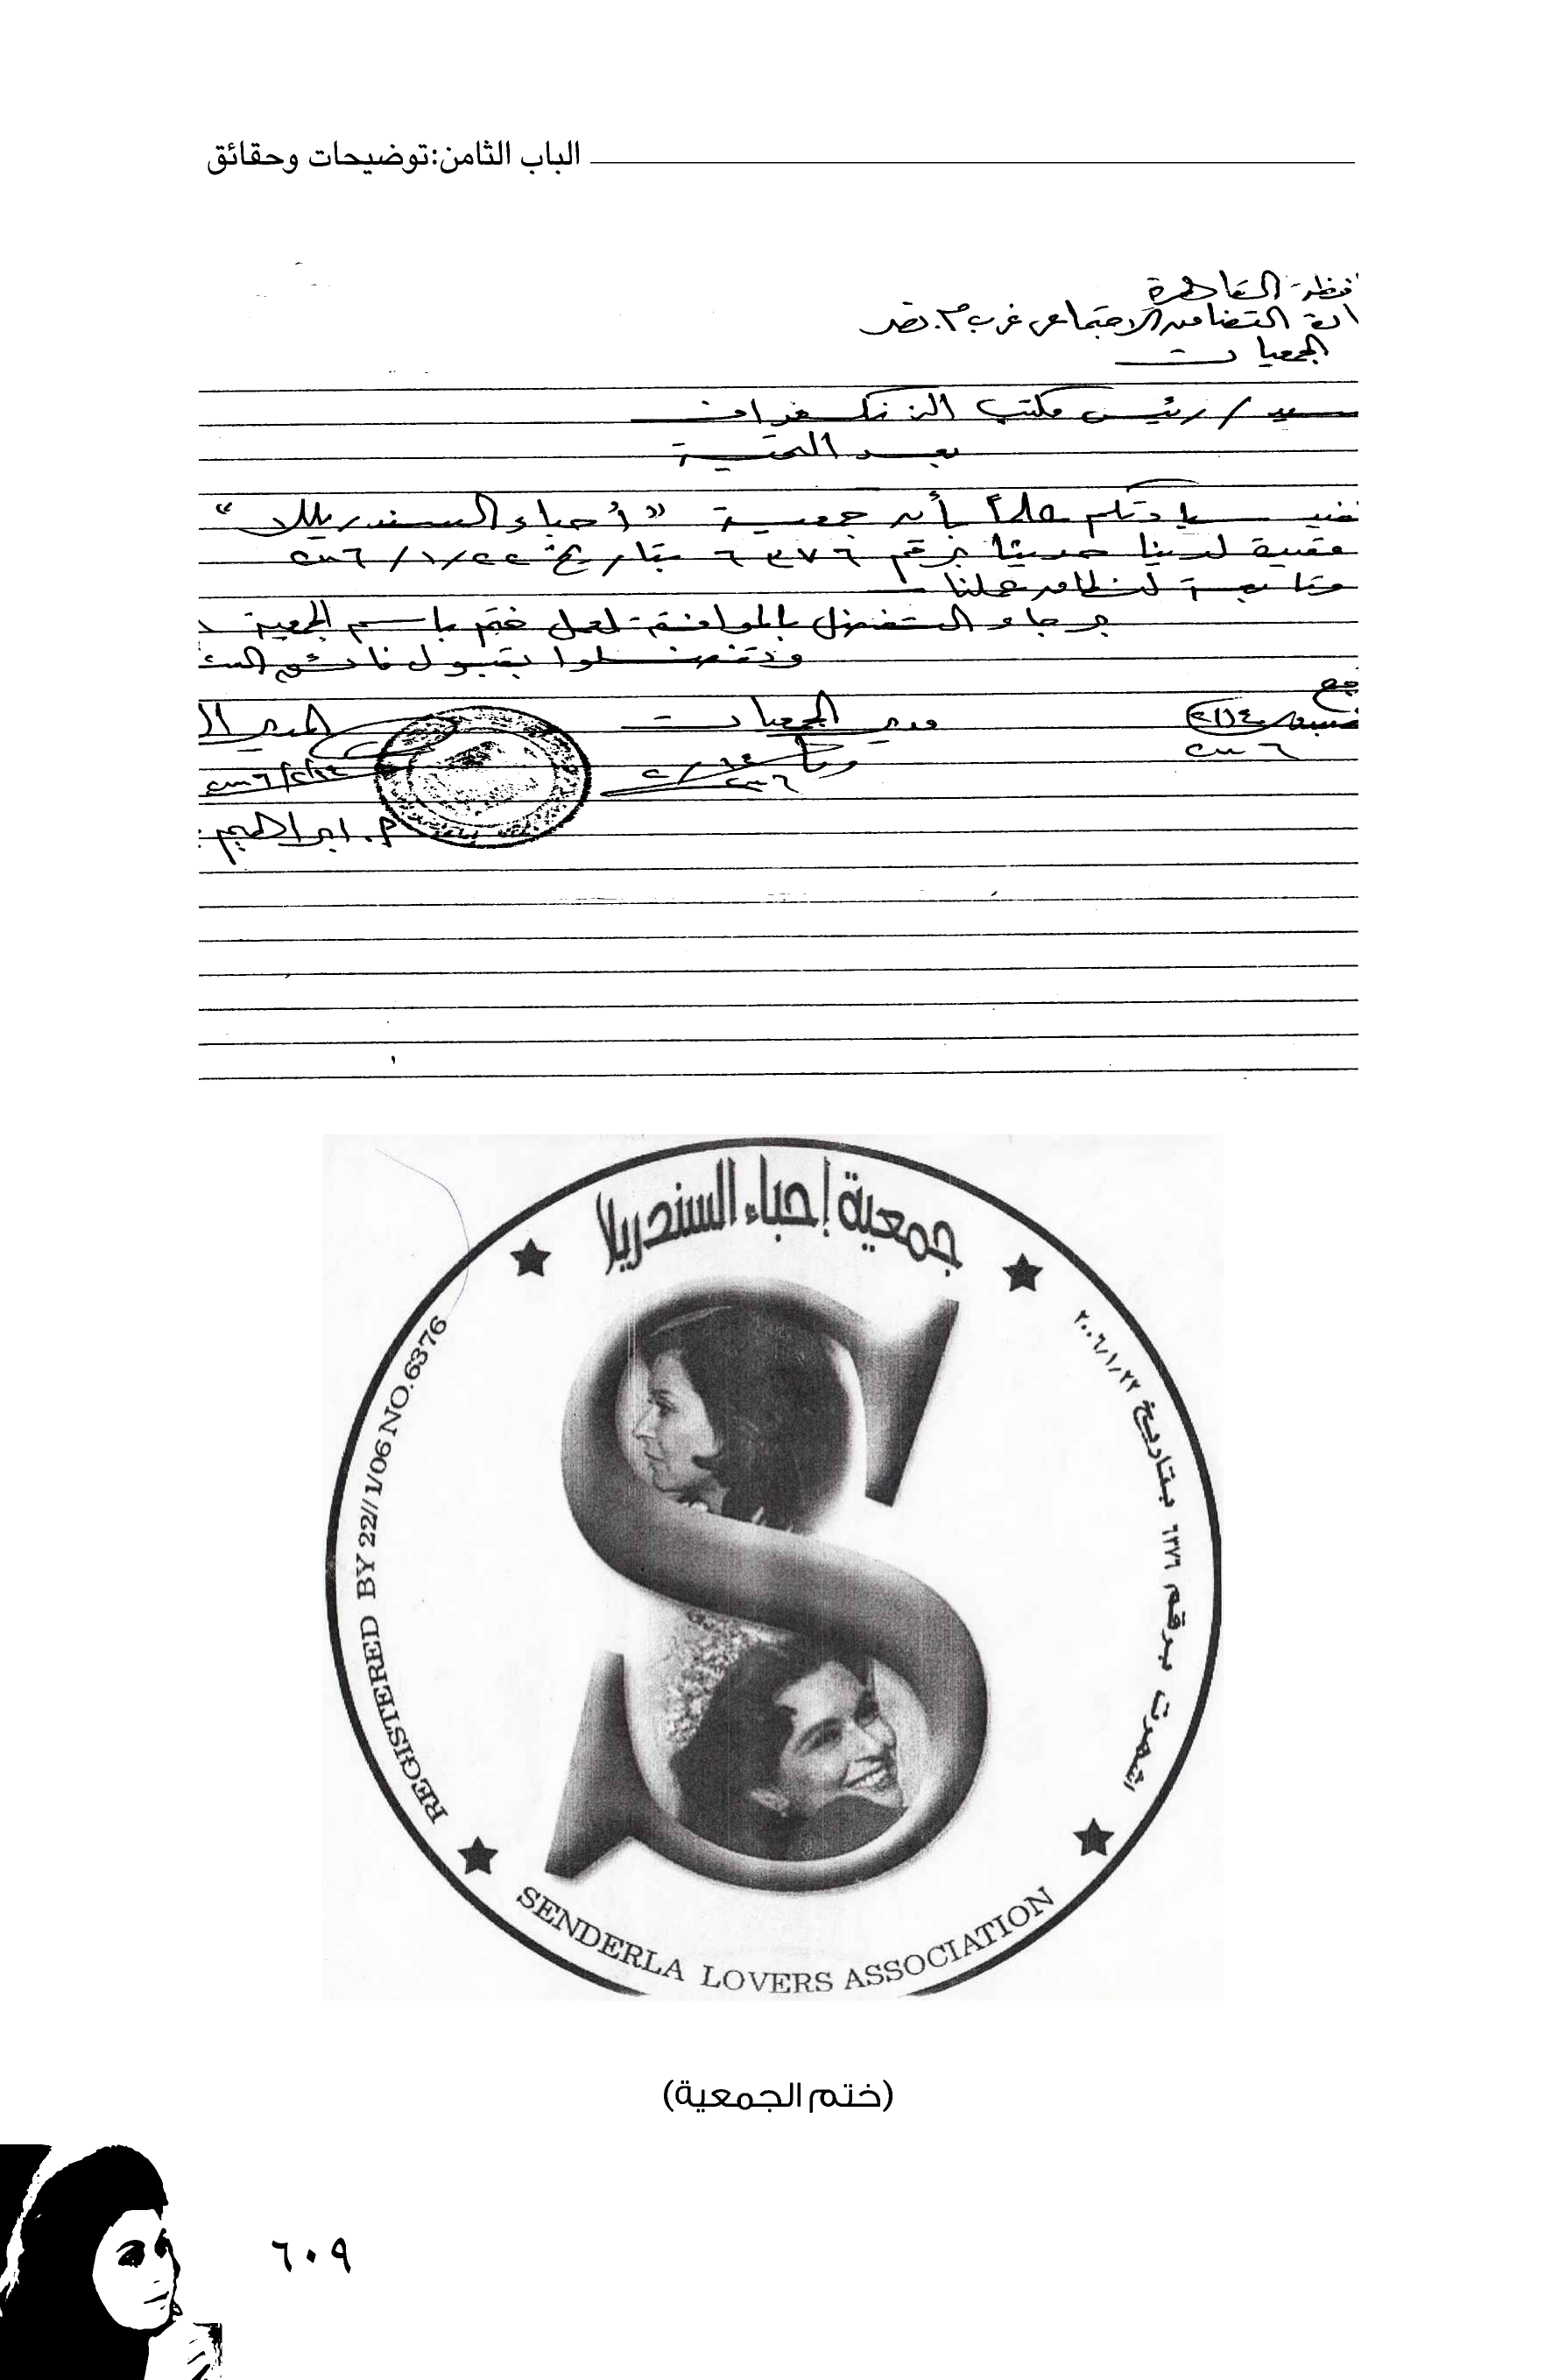 الباب الثامن:توضيحات وحقائق
فظة القاهرة
ارة التضامن الاجتماعى غرب م. نصر
الجمعيات
السيد / رئيس مكتب الزنكغراف
بعد التحية
نفيد سيادتكم علماً بأن جمعية "أحباء السندريللا"
مقيدة لدينا حديثاً برقم ٦٣٧٦ بتاريخ ٢٢/١/٢٠٠٦
وتابعة لنظام عملنا
برجاء التفضل بالموافقة لعمل ختم باسم الجمعية
وتفضلوا بقبول فائق
مدير الجمعيات
المدير ال
٢٠٠٦
م. ابراهيم
جمعية إحباء السندريلا
اشهرت برقم ٦٣٧٦ بتاريخ ٢٠٠٦/١/٢٢
REGISTERED BY 22//1/06 NO.6376
SENDERLA LOVERS ASSOCIATION
S
(ختم الجمعية)
٦٠٩